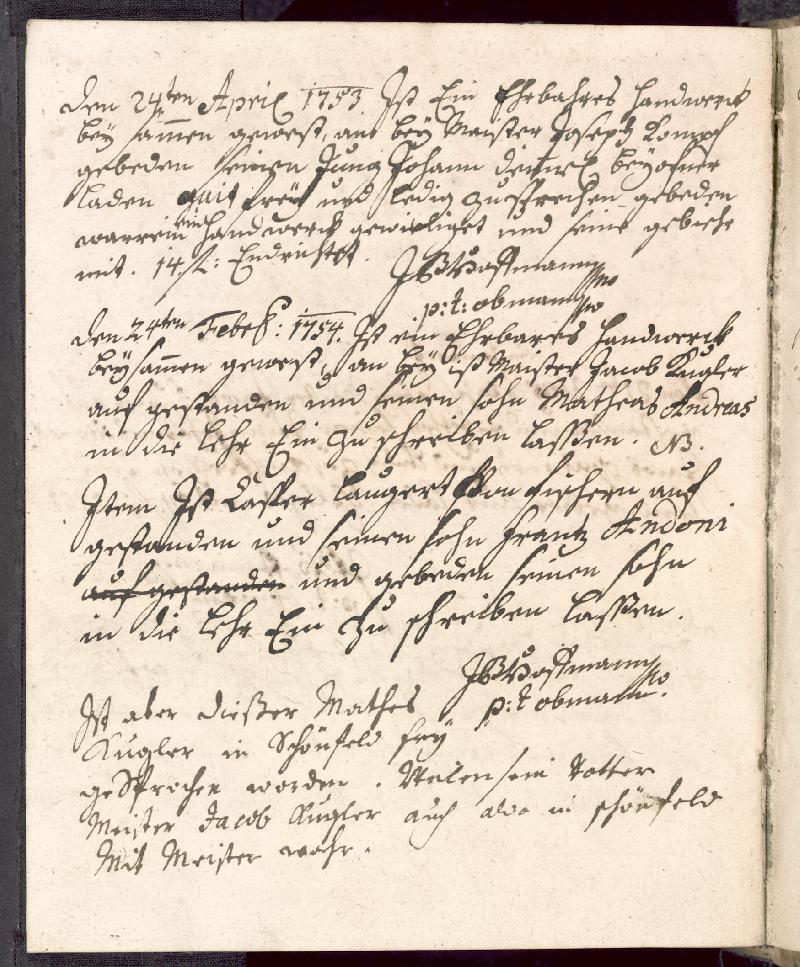 den 24ten Aprill 1753. Ist Ein Ehrbahres Handwerck
bey sam̄en gewest, an bey Maister Joseph
gebeden seinen Jung Johann beÿ ofner
laden quit freÿ und ledig zu sprechen gebeden
ein
Handwerck gewilliget und seine gebiehr
mit. 14 Endrichtet.
Hoffmann
p: t: obmann
den 24ten Febr: 1754. Ist ein Ehrbares Handwerck
beysam̄en gewest, an beÿ ist Maister Jacob Kugler
auf gestanden und seinen sohn Matheas Andreas
in die lehr Ein zu schreiben lassen. NB.
Item Ist Casper Laugert von fischern auf
gestanden und seinen sohn Frantz Andoni
auf gestanden und gebeden seinen sohn
in die lehr Ein zu schreiben lassen.
Hoffmann
p: t obmann.
Ist aber dießer Mathes
Kugler in Schönfeld freÿ
gesprochen worden. Weilen sein Vatter
Meister Jacob Kugler auch alda in schönfeld
Mit Meister wahr.